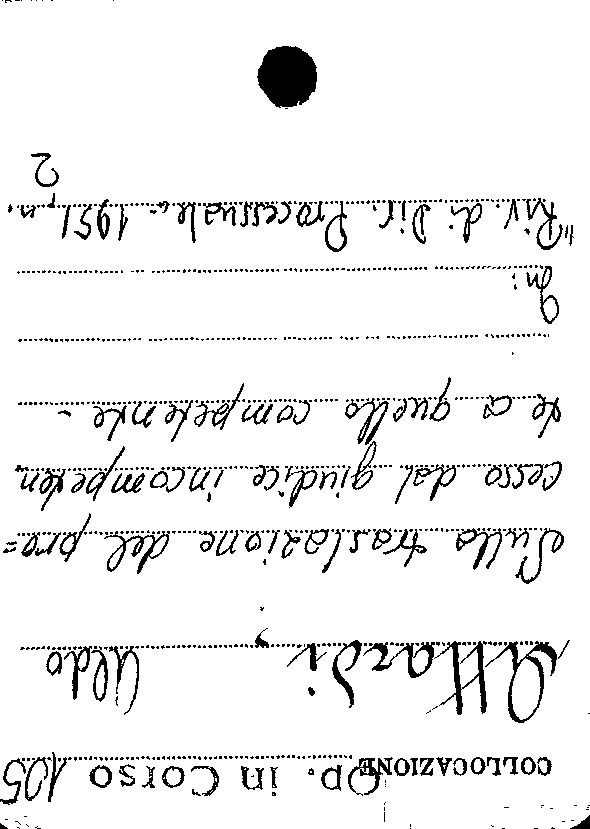 COLLOCAZIONE Op. in Corso 105
Attardi, Aldo
Sulla traslazione del pro=
cesso dal giudice incompeten.
te a quello competente -
In:
"Riv. di Dir. Processuale: 1951, n.
2